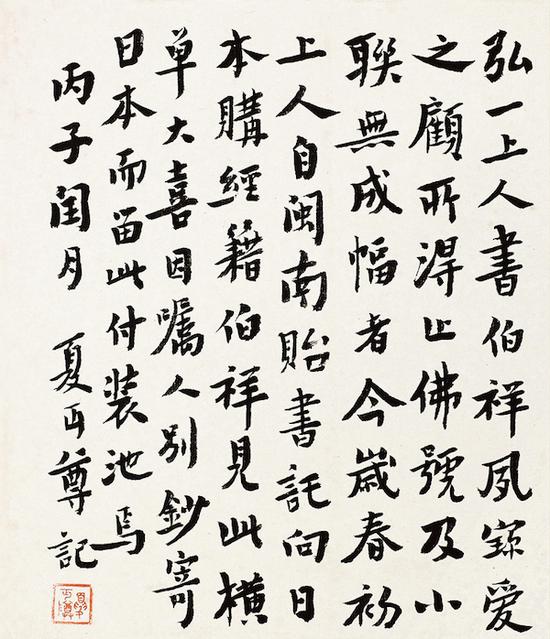 弘一上人書伯祥夙寶愛
之顧所得止佛號及小
聯無成幅者今歲春初
上人自閩南貽書託向日
本購經籍伯祥見此橫
單大喜因囑人別鈔寄
日本而留此付裝池焉
丙子閏月 夏丏尊記
夏丏尊